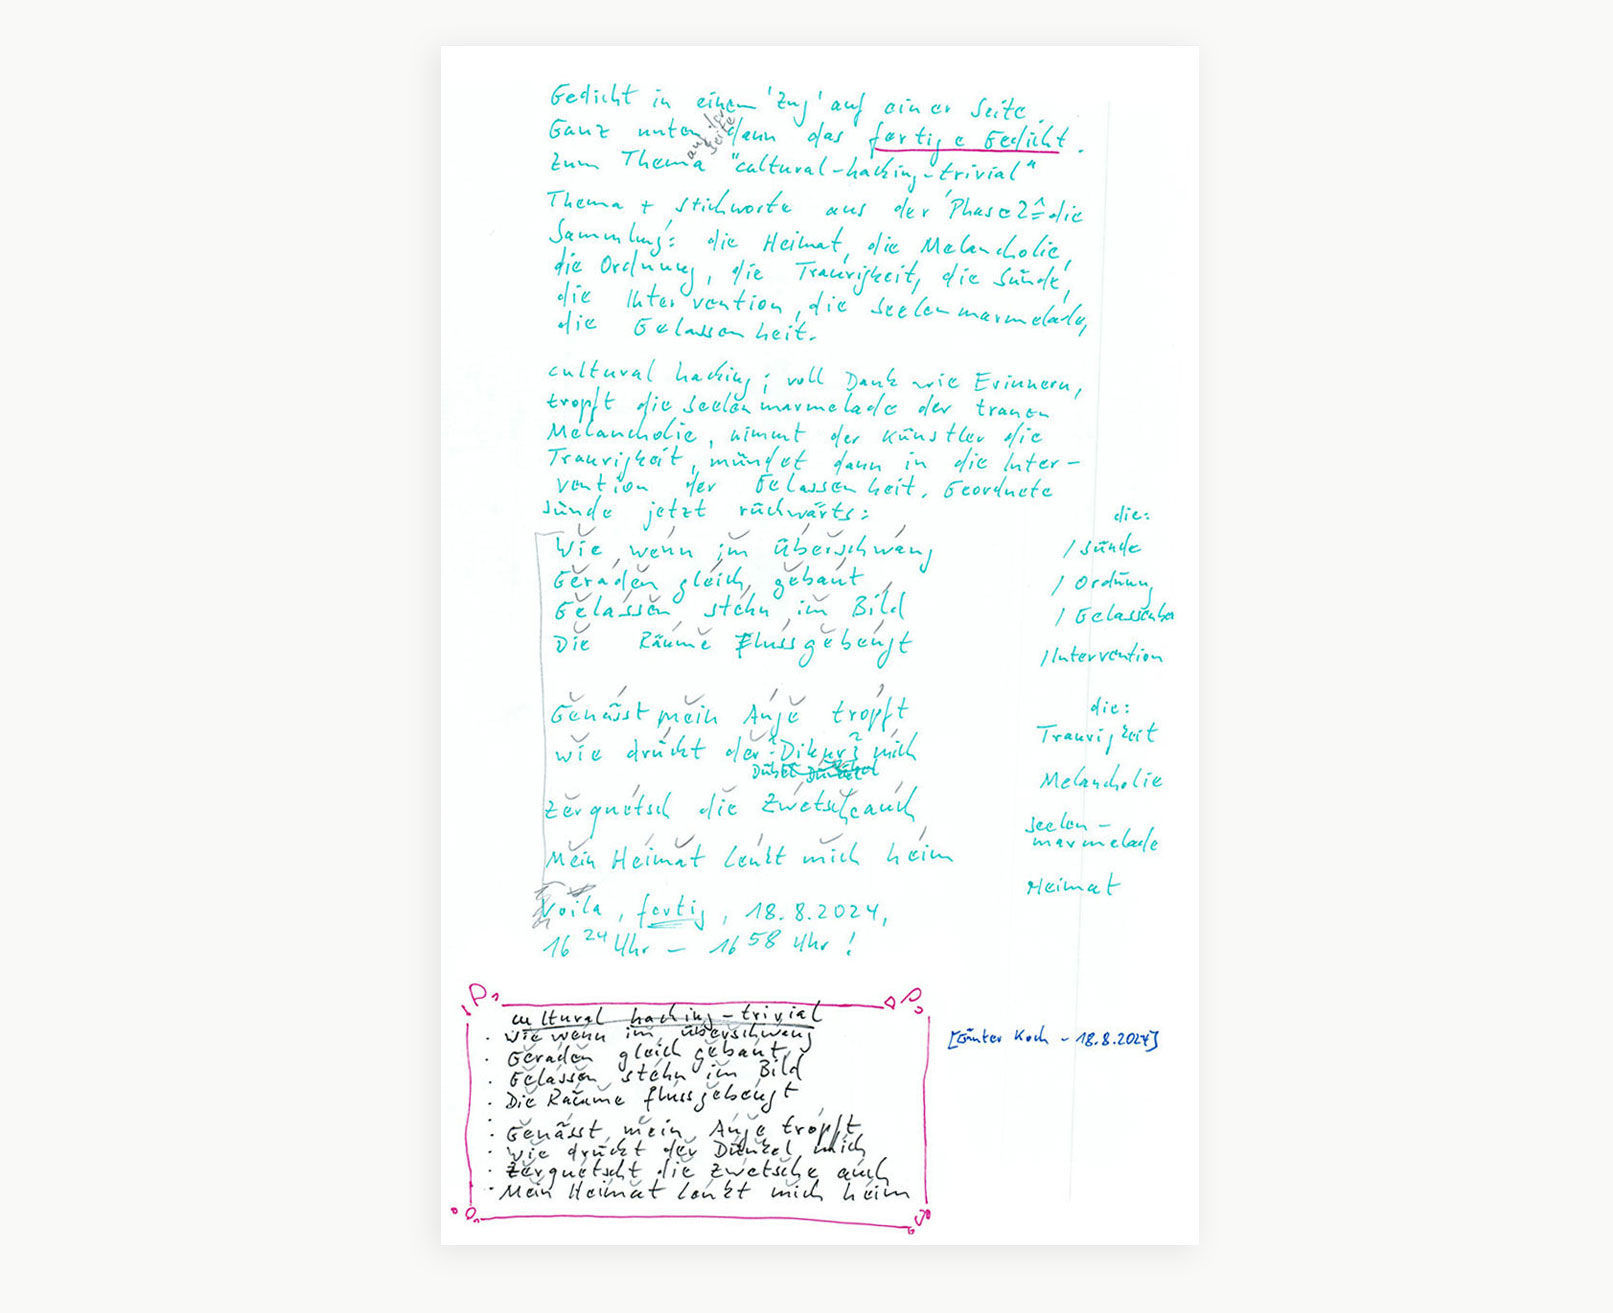 Gedicht in einem 'Zug' auf einer Seite.
Ganz unten auf der Seite dann das fertige Gedicht.
Zum Thema "cultural-hacking-trivial"
Thema + Stichworte aus der 'Phase 2 ≙ die
Sammlung': die Heimat, die Melancholie,
die Ordnung, die Traurigkeit, die Sünde,
die Intervention, die Seelenmarmelade,
die Gelassenheit.
cultural hacking; voll Dank wie Erinnern,
tropft die Seelenmarmelade der tranen
Melancholie, nimmt der Künstler die
Traurigkeit, mündet dann in die Inter-
vention der Gelassenheit. Geordnete
Sünde jetzt rückwärts:
Wie wenn im Überschwang
Geraden gleich gebaut
Gelassen stehn im Bild
Die Räume Flussgebeugt
Genässt mein Auge tropft
wie drückt der mich
Zerquetsch die Zwetsche auch
Mein Heimat lenkt mich heim
die:
/ Sünde
/ Ordnung
/ Gelassenhei
/ Intervention
die:
Traurigkeit
Melancholie
Seelen-
marmelade
Heimat
Voila, fertig, 18.8.2024,
16 24 Uhr – 16 58 Uhr!
cultural hacking-trivial
· Wie wenn im Überschwang
· Geraden gleich gebaut
· Gelassen stehn im Bild
· Die Räume flussgebeugt
· Genässt mein Auge tropft
· Wie drückt der Dünkel mich
· Zerquetscht die Zwetsche auch
· Mein Heimat lenkt mich heim
[Günter Koch - 18.8.2024]